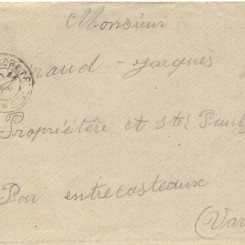 Monsieur
raud - jacques
Propriétère et Ste Paul
Par entrecasteaux
(Var